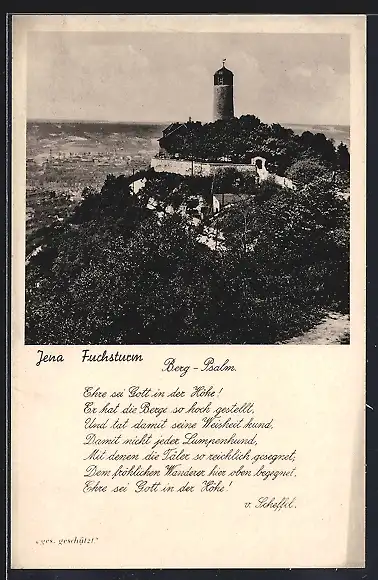 Jena Fuchsturm
Berg-Psalm.
Ehre sei Gott in der Höhe!
Er hat die Berge so hoch gestellt,
Und tat damit seine Weisheit kund,
Damit nicht jeder Lumpenhund,
Mit denen die Täler so reichlich gesegnet,
Dem fröhlichen Wanderer hier oben begegnet,
Ehre sei Gott in der Höhe!
v. Scheffel.
ges. geschützt